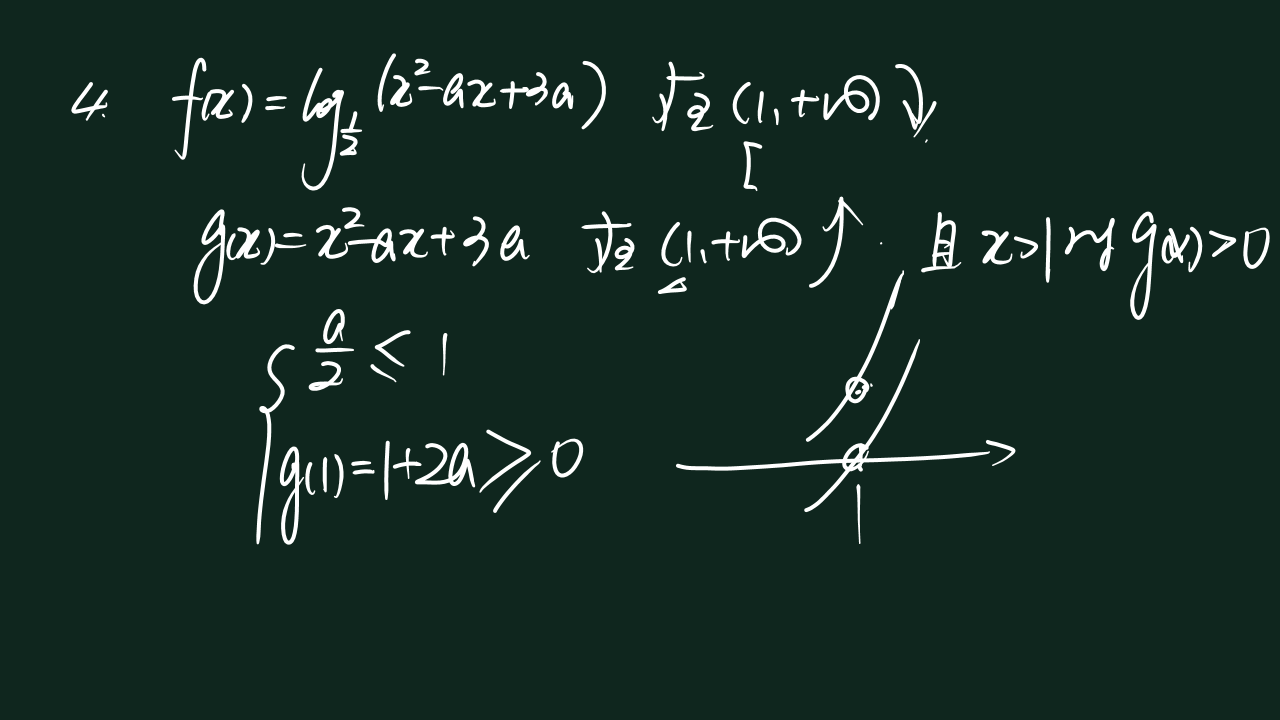 4. f(x)=log_{1/2}(x²-ax+3a) 在(1,+∞)↓.
[
g(x)=x²-ax+3a 在(1,+∞)↑. 且x>1时g(x)>0
{ a/2 ≤ 1
g(1)=1+2a≥0
1